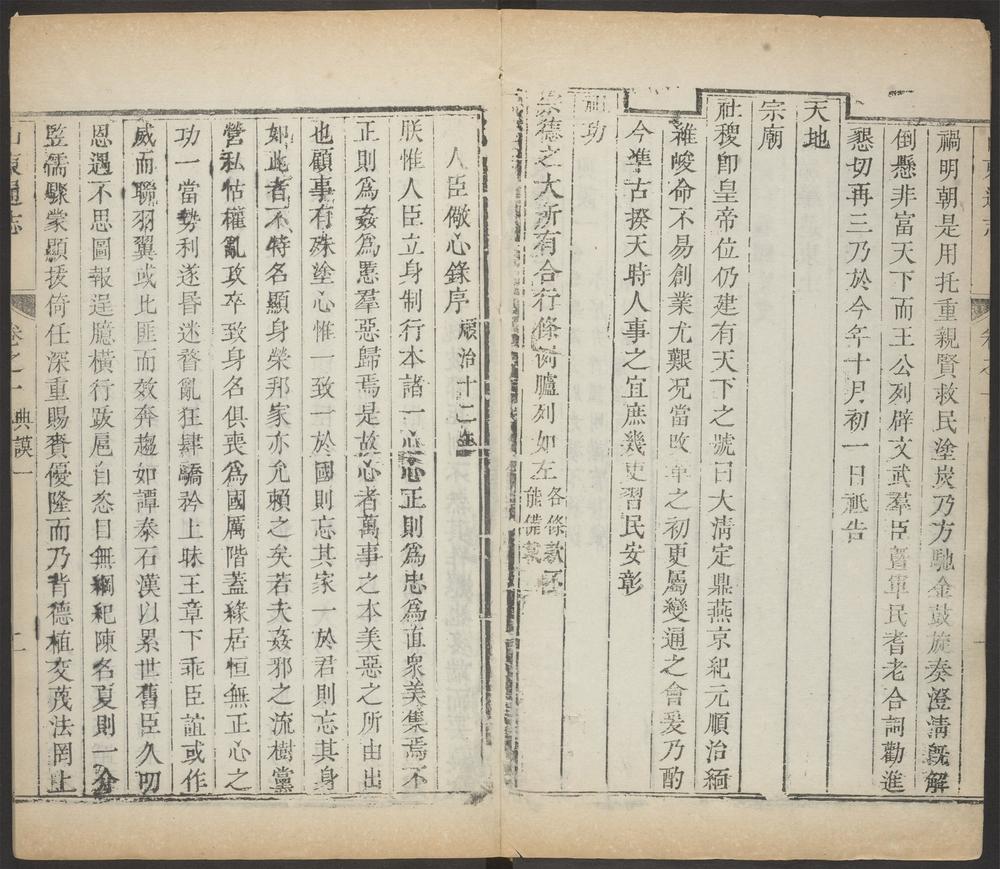 禍明朝是用托重親賢救民塗炭乃方馳金鼓旋奏澄淸旣解
倒懸非富天下而王公列辟文武羣臣曁軍民耆老合詞勸進
懇切再三乃於今年十月初一日祇告
天地
宗廟
社稷卽皇帝位仍建有天下之號曰大淸定鼎燕京紀元順治緬
維峻命不易創業尤艱况當改革之初更屬變通之會爰乃酌
今凖古揆天時人事之宜庶幾吏習民安彰
祖功
宗德之大所有合行條例臚列如左各條款不
能備載
人臣儆心錄序順治十二年
朕惟人臣立身制行本諸一心心正則爲忠爲直衆美集焉不
正則爲姦爲慝羣惡歸焉是故心者萬事之本美惡之所由出
也顧事有殊塗心惟一致一於國則忘其家一於君則忘其身
如此者不特名顯身榮邦家亦允賴之矣若夫姦邪之流樹黨
營私怙權亂政卒致身名俱喪爲國厲階蓋緣居恒無正心之
功一當勢利遂昏迷瞀亂狂肆驕矜上昧王章下乖臣誼或作
威而聯羽翼或比匪而效奔趨如譚泰石漢以累世舊臣久叨
恩遇不思圖報逞臆橫行跋扈自恣目無綱紀陳名夏則一介
豎儒驟蒙顯拔倚任深重賜賚優隆而乃背德植交蔑法罔上
山東通志
卷之一 典謨一
二